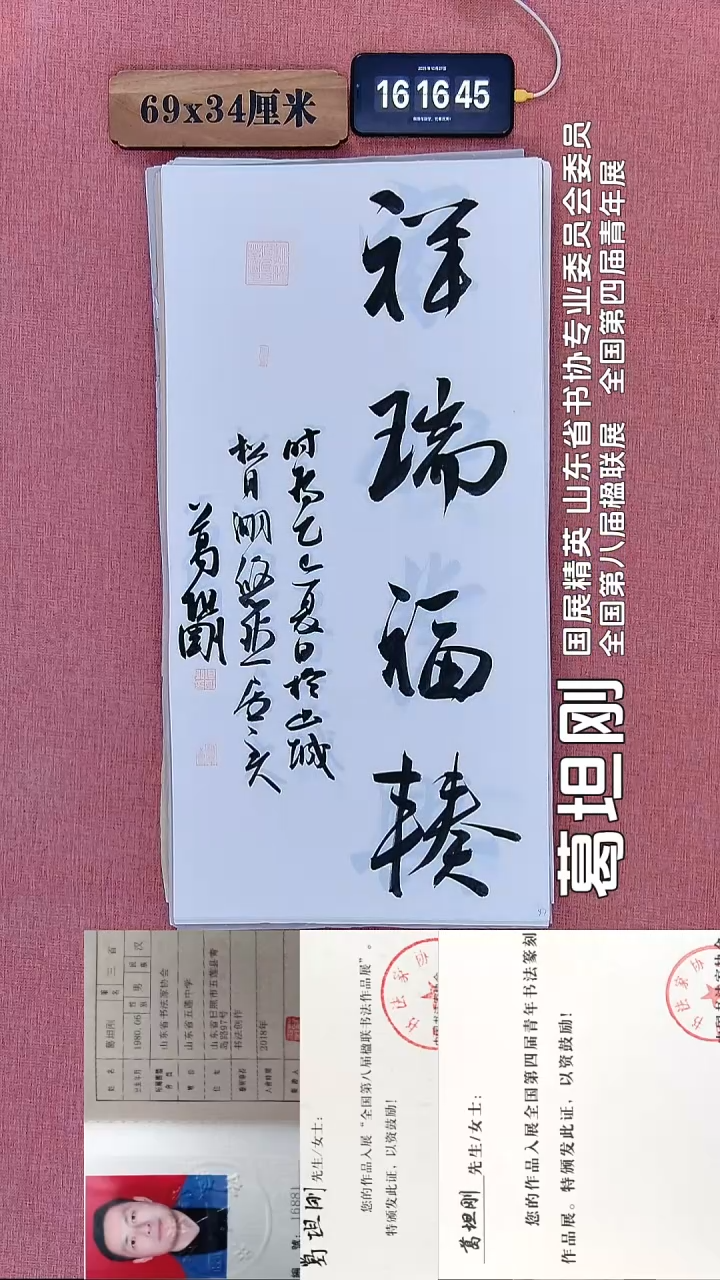 69x34厘米
2025年10月27日
16 16 45
祥瑞福辏
时为乙巳夏日于山城
松月湖悠然居
葛坦刚
葛坦刚
国展精英 山东省书协专业委员会委员
全国第八届楹联展 全国第四届青年展
葛坦刚
1980.06
男
汉
山东省书法家协会
山东省五莲中学
书法创作
2018年
編 號: 16881
葛坦刚 先生/女士:
您的作品入展“全国第八届楹联书法作品展”。
特颁发此证，以资鼓励!
葛坦刚 先生/女士:
您的作品入展全国第四届青年书法篆刻
作品展。特颁发此证，以资鼓励!